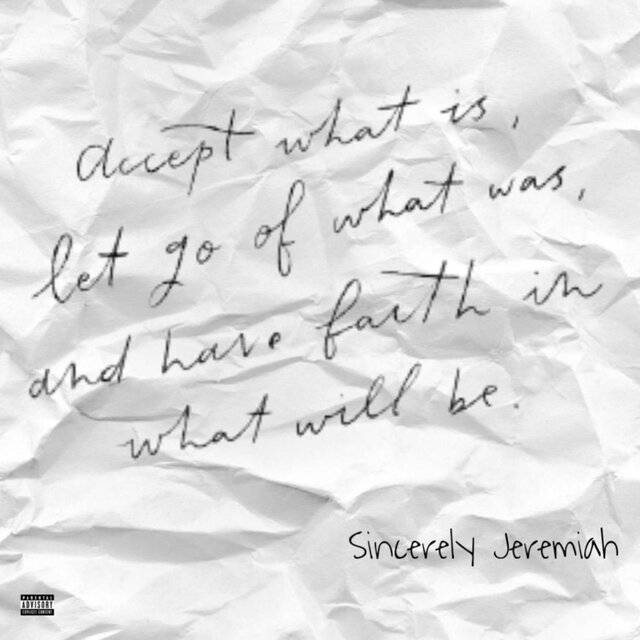 accept what is,
let go of what was,
and have faith in
what will be.
Sincerely Jeremiah
PARENTAL
ADVISORY
EXPLICIT CONTENT